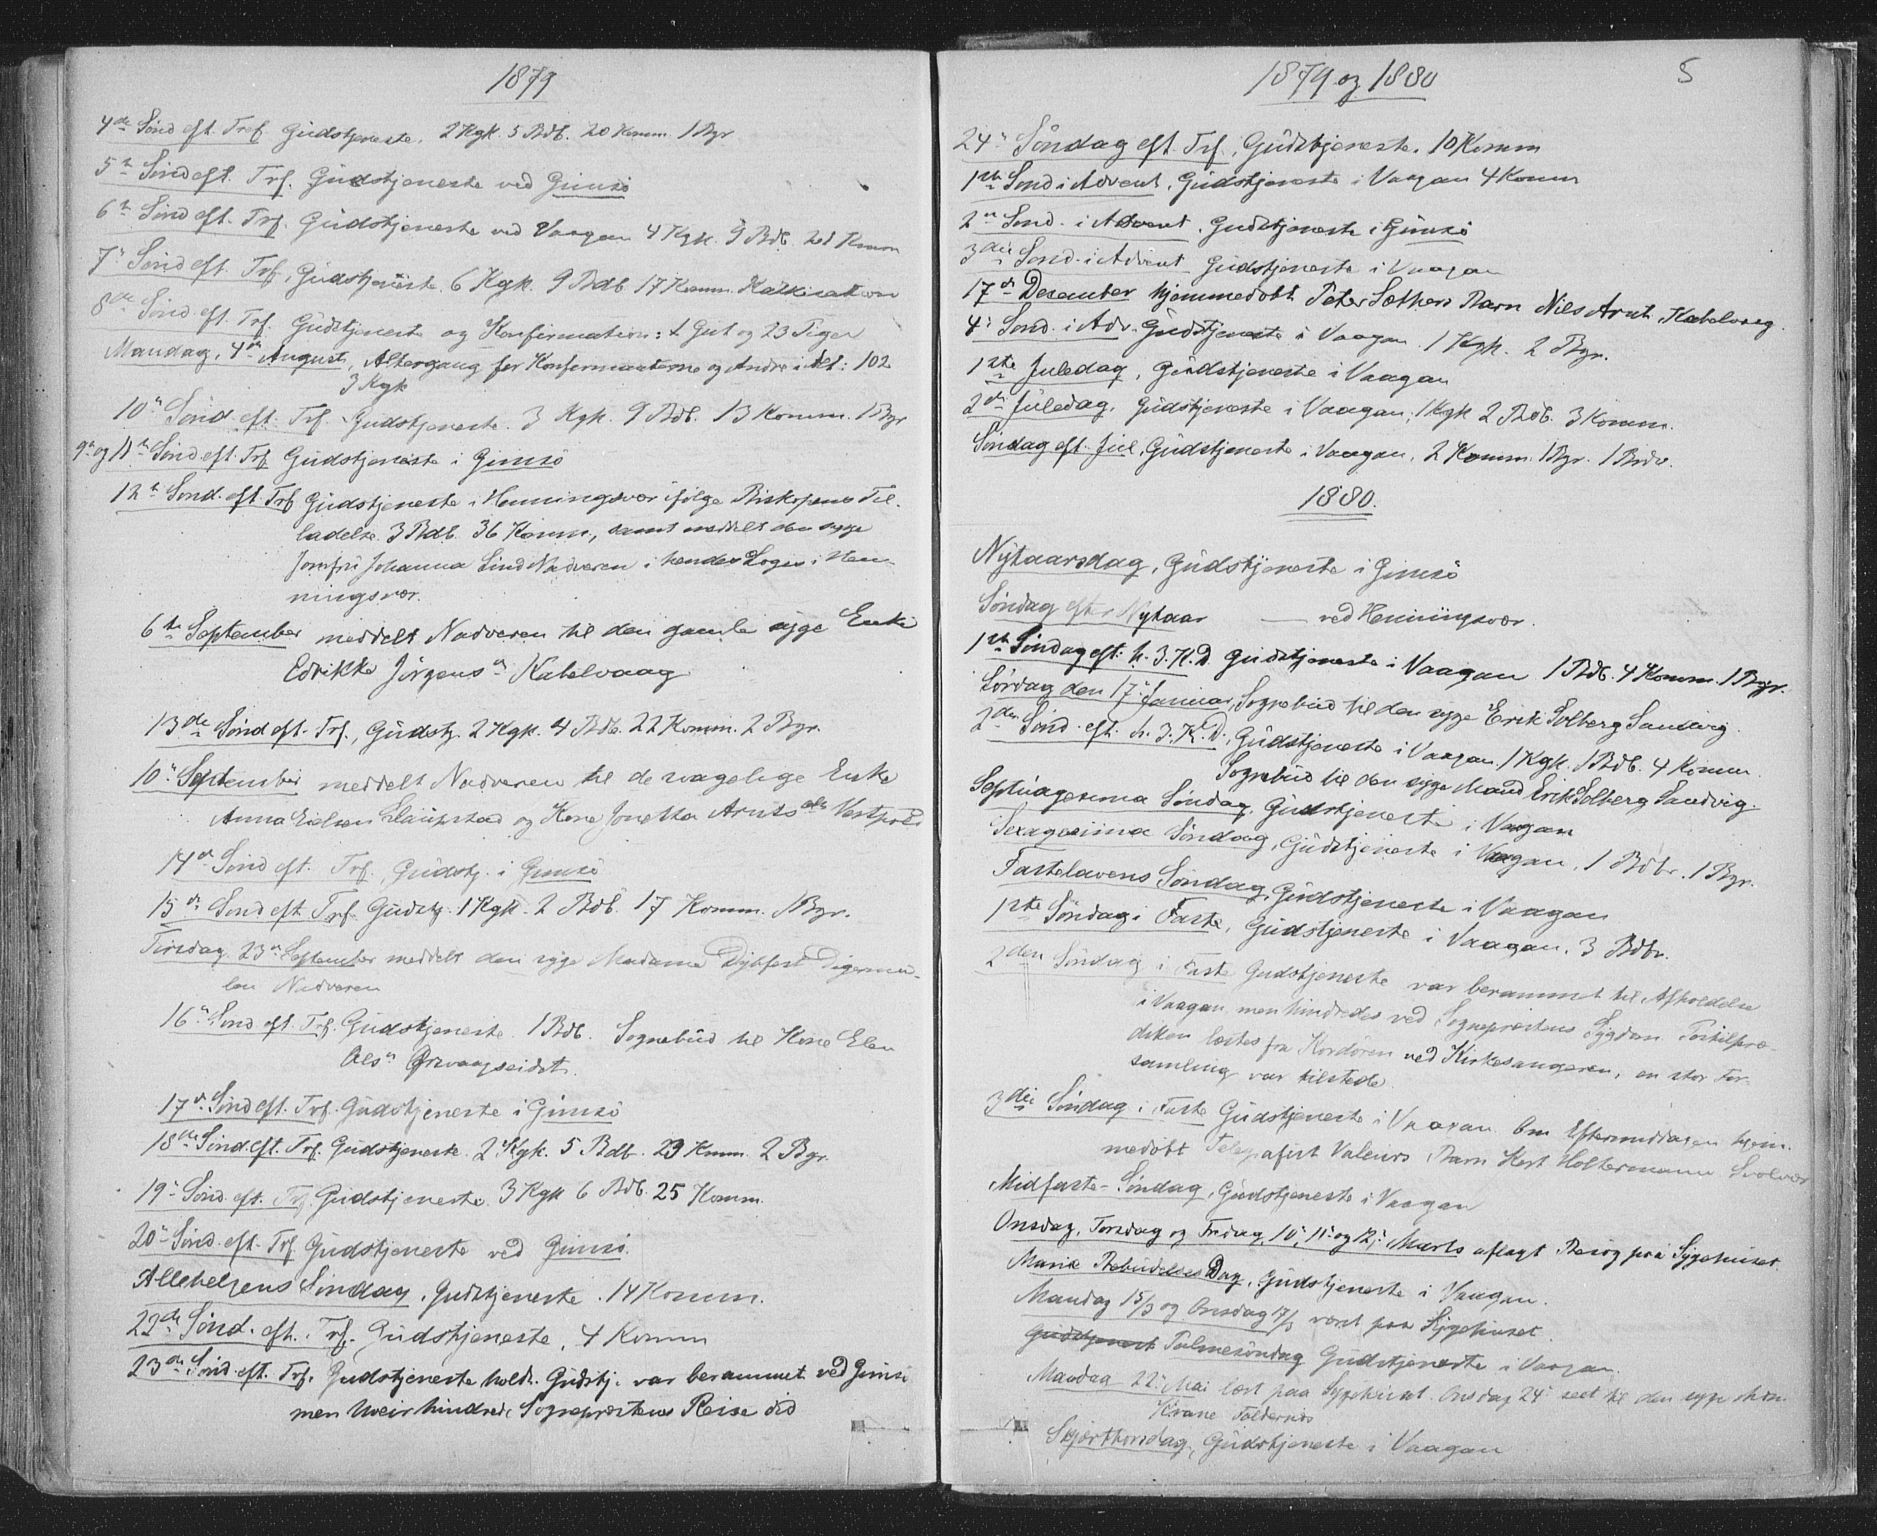 1879
4de Sønd eft. Tref. Gudstjeneste. 2 Kgk. 5 Bdb. 20 Komm. 1 Bgr.
5te Sønd eft. Trf. Gudstjeneste ved Gimsö
6te Sønd eft. Trf. Gudstjeneste ved Vaagan 4 Kgk. 9 Bdb. Komm
7de Sønd eft. Trf. Gudstjeneste 6 Kgk. 9 Bdb 17 Komm.
8de Sønd. eft. Trf. Gudstjeneste og Konfirmation: Gut og 23 Piger
Mandag, 4de August, Altergang for Konfirmanterne og Andre i Alt: 102
3 Kgk
10de Sønd. eft. Trf. Gudstjeneste. 3 Kgk. 9 Bdb. 13 Komm. 1 Bgr
9de og 11te Sønd eft. Trf. Gudstjeneste i Gimsö
12te Sønd. eft. Trf Gudstjeneste i Henningsvær ifølge Biskopens Til-
ladelse. 3 Bdb. 36 Komm, samt meddelt den syge
Jomfru Johanna Lind Nadveren i hendes Logis i Hen-
ningsvær.
6te September meddelt Nadveren til den gamle syge Enke
Edrikke Jörgensdr Kabelvaag
13de Sønd eft. Trf., Gudstj. 2 Kgk. 4 Bdb. 22 Komm. 2 Bgr.
10de September meddelt Nadveren til de vagelige Enke
Anna Laupstad og Kone Jonetta Arntsdr Vestpold
14de Sønd eft. Trf. Gudstj. i Gimsö
15de Sønd eft Trf. Gudstj. 1 Kgk. 2 Bdb. 17 Komm. 1 Bgr.
Tirsdag 23de September meddelt den syge Madame Dybfest Digermu-
len Nadveren
16de Sønd eft. Trf. Gudstjeneste 1 Bdb. Sognebud til Kone Elen
Olsdr Örsvaagseidet.
17de Sønd eft. Trf. Gudstjeneste i Gimsö
18de Sønd. eft. Trf. Gudstjeneste. 2 Kgk. 5 Bdb. 23 Komm. 2 Bgr.
19de Sønd. eft. Trf Gudstjeneste. 3 Kgk 6 Bdb. 25 Komm.
20de Sønd. eft. Trf Gudstjeneste ved Gimsö.
Allehelgens Søndag. Gudstjeneste. 14 Komm.
22de Sønd. eft. Trf. Gudstjeneste. 4 Komm
23de Sønd. eft. Trf. Gudstjeneste holdt. Gudstj. var berammet ved Gimsö
men Uveir hindrede Sogneprestens Reise did
1879 og 1880
5
24de Søndag eft. Trf., Gudstjeneste. 10 Komm
1ste Sønd i Advent, Gudstjeneste i Vaagan 4 Komm
2den Sønd. i Advent. Gudstjeneste i Gimsö
3die Sønd. i Advent Gudstjeneste i Vaagan
17de Desember hjemmedöbt Peter Sæthers Barn Nils Arnt, Kabelvaag.
4de Sønd. i Adv. Gudstjeneste i Vaagan. 1 Kgk. 2 Bgr.
1ste Juledag, Gudstjeneste i Vaagan
2den Juledag, Gudstjeneste i Vaagan, 1 Kgk 2 Bdb. 3 Komm.
Søndag eft. Jul, Gudstjeneste i Vaagan, 2 Komm. 1 Bgr. 1 Brdv.
1880.
Nytaarsdag, Gudstjeneste i Gimsö
Søndag efter Nytaar — ved Henningsvær.
1ste Søndag eft. h. 3. K. D. Gudstjeneste i Vaagan 1 Bdb. 4 Komm. 1 Bgr.
Lørdag den 17de Januar, Sognebud til den syge Erik Solberg Sandvig.
2den Sønd. eft. h. 3. K. D., Gudstjeneste i Vaagan, 1 Kgk. 1 Bdb. 4 Komm.
Sognebud til den syge Mand Erik Solberg Sandvig.
Septuagesima Søndag, Gudstjeneste i Vaagan
Sexagesima Søndag, Gudstjeneste i Vaagan. 1 Bdbr. 1 Bgr.
Fastelavens Søndag, Gudstjeneste i Vaagan
1ste Søndag i Faste, Gudstjeneste i Vaagan. 3 Bdbr.
2den Søndag i Faste Gudstjeneste var berammet til Afholdelse
i Vaagan, men hindredes ved Sogneprestens Sygdom.
diken læstes fra Kordören ved Kirkesangeren, en stor For-
samling var tilstede.
3die Søndag i Faste Gudstjeneste i Vaagan. Om Eftermiddagen hjem-
medöbt Telegrafist Valeurs Barn Holtermann Svolvær
Midfaste-Søndag, Gudstjeneste i Vaagan
Onsdag, Torsdag og Fredag, 10de, 11te og 12te Marts aflagt Besøg paa Sygehuset
Mariæ Bebudelses Dag, Gudstjeneste i Vaagan.
Mandag 15/3 og Onsdag 17/3 været paa Sygehuset.
Gudstjenest Palmesöndag Gudstjeneste i Vaagan
Mandag 22de Mai læst paa Sygehuset. Onsdag 24de seet til den syge
Krane
Skjærthorsdag, Gudstjeneste i Vaagan